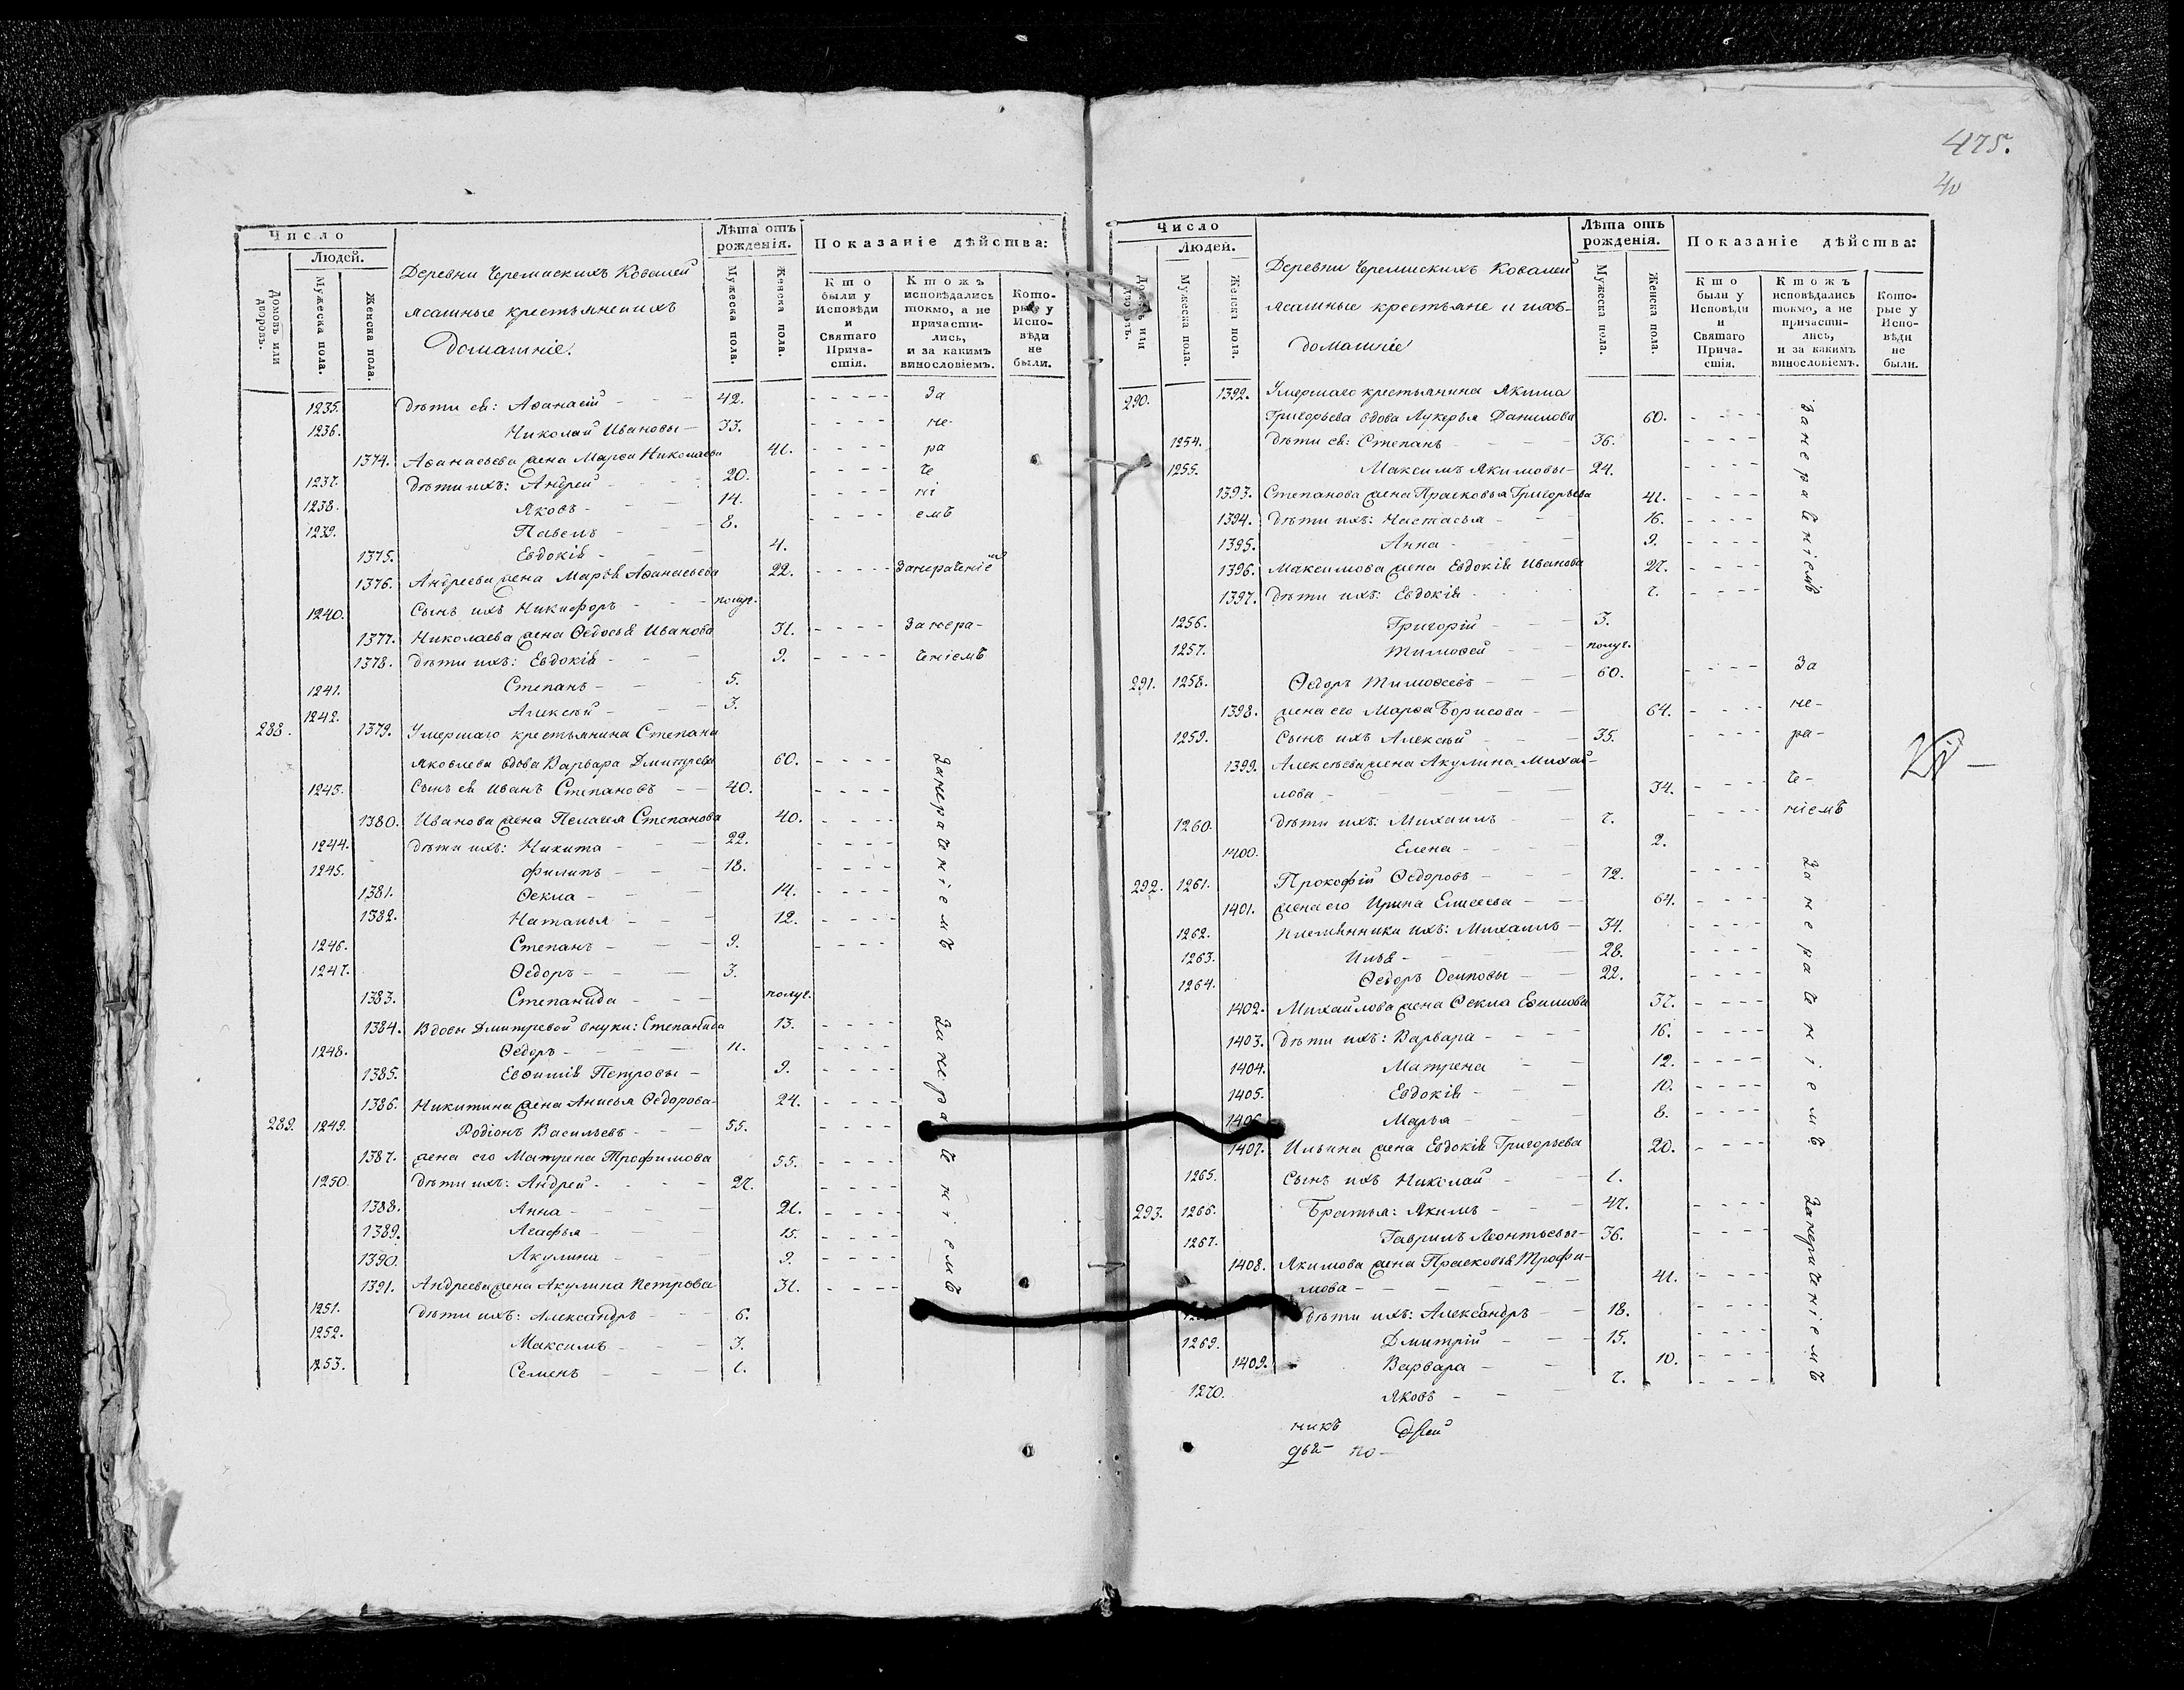 475.
40
Число
Людей.
Домовъ или дворовъ.
Мужеска пола.
Женска пола.
Деревни Черемискихъ Ковалей
ясашные крестьяне и ихъ
домашніе.
Лѣта отъ рожденія.
Мужеска пола.
Женска пола.
Показаніе дѣйства:
Кто были у Исповѣди и Святаго Причастія.
Ктожъ исповѣдались токмо, а не причастились, и за какимъ винословіемъ.
Которые у Исповѣди не были.
1235. дѣти ея: Афанасій - - 42. - - - - За
1236. Николай Ивановы - 33. - - - - не-
1374. Афанасьева жена Марѳа Николаева 41. - - - - ра
1237. дѣти ихъ: Андрей - - 20. - - - - че
1238. Яковъ - - 14. - - - - ні
1239. Павелъ - - 8. - - - - емъ
1375. Евдокія - - 4.
1376. Андреева жена Марѳа Афанасьева 22. - - - - Занераченіемъ
1240. Сынъ ихъ Никифоръ - - полуг.
1377. Николаева жена Ѳедосья Иванова 31. - - - - Занера-
1378. дѣти ихъ: Евдокія - - 9. - - - - ченіемъ
1241. Степанъ - - 5.
1242. Алексѣй - - 3.
288. 1379. Умершаго крестьянина Степана
Яковлева вдова Варвара Дмитрева 60. - - - - Занераченіемъ
1243. Сынъ ея Иванъ Степановъ - - 40. - - - -
1380. Иванова жена Пелагея Степанова 40. - - - -
1244. дѣти ихъ: Никита - - 22. - - - -
1245. Филипъ - - 18. - - - -
1381. Ѳекла - - 14. - - - -
1382. Наталья - - 12. - - - -
1246. Степанъ - - 9. - - - -
1247. Ѳедоръ - - 3.
1383. Степанида - - полуг.
1384. Вдовы Дмитревой внуки: Степанида 13. - - - - Занераченіемъ
1248. Ѳедоръ - - 11. - - - -
1385. Евфимія Петровы - 9. - - - -
1386. Никитина жена Анисья Ѳедорова - 24. - - - -
289. 1249. Родіонъ Васильевъ - - 55.
1387. жена его Матрена Трофимова 55. - - - -
1250. дѣти ихъ: Андрей - - 27. - - - -
1388. Анна - - 21. - - - -
1389. Агафья - - 15. - - - -
1390. Акулина - - 9. - - - -
1391. Андреева жена Акулина Петрова 31. - - - -
1251. дѣти ихъ: Александръ - - 6.
1252. Максимъ - - 3.
1253. Семенъ - - 1.
Число
Людей.
Домовъ или дворовъ.
Мужеска пола.
Женска пола.
Деревни Черемискихъ Ковалей
ясашные крестьяне и ихъ
домашніе
Лѣта отъ рожденія.
Мужеска пола.
Женска пола.
Показаніе дѣйства:
Кто были у Исповѣди и Святаго Причастія.
Ктожъ исповѣдались токмо, а не причастились, и за какимъ винословіемъ.
Которые у Исповѣди не были.
290. 1392. Умершаго крестьянина Якима
Григорьева вдова Лукерья Данилова 60. - - - - Занераченіемъ
1254. дѣти ея: Степанъ - - 36. - - - -
1255. Максимъ Якимовы - 24. - - - -
1393. Степанова жена Прасковья Григорьева 41. - - - -
1394. дѣти ихъ: Настасья - - 16. - - - -
1395. Анна - - 9. - - - -
1396. Максимова жена Евдокія Иванова 27. - - - -
1397. дѣти ихъ: Евдокія - - 7. - - - -
1256. Григорій - - 3.
1257. Тимофей - - полуг.
291. 1258. Ѳедоръ Тимофеевъ - - 60. - - - - За
1398. жена его Марѳа Борисова - 64. - - - - не-
1259. Сынъ ихъ Алексѣй - - 35. - - - - ра-
1399. Алексѣева жена Акулина Михай-
лова - - 34. - - - - че-
1260. дѣти ихъ: Михаилъ - - 7. - - - - ніемъ
1400. Елена - - 2.
292. 1261. Прокофій Ѳедоровъ - - 72. - - - - Занераченіемъ
1401. жена его Ирина Елисеева - 64. - - - -
1262. племянники ихъ: Михаилъ - 34. - - - -
1263. Илья - - 28. - - - -
1264. Ѳедоръ Осиповы - 22. - - - -
1402. Михайлова жена Ѳекла Ефимова 37. - - - -
1403. дѣти ихъ: Варвара - - 16. - - - -
1404. Матрена - - 12. - - - -
1405. Евдокія - - 10. - - - -
1406. Марья - - 8. - - - -
1407. Ильина жена Евдокія Григорьева 20. - - - -
1265. Сынъ ихъ Николай - - 1.
293. 1266. Братья: Якимъ - - 47. - - - - Занераченіемъ
1267. Гаврилъ Леонтьевы - 36. - - - -
1408. Якимова жена Прасковья Трофи-
мова - - 41. - - - -
дѣти ихъ: Александръ - - 18. - - - -
1269. Дмитрій - - 15. - - - -
1409. Варвара - - 10. - - - -
1270. Яковъ - - 7. - - - -
никъ
по-